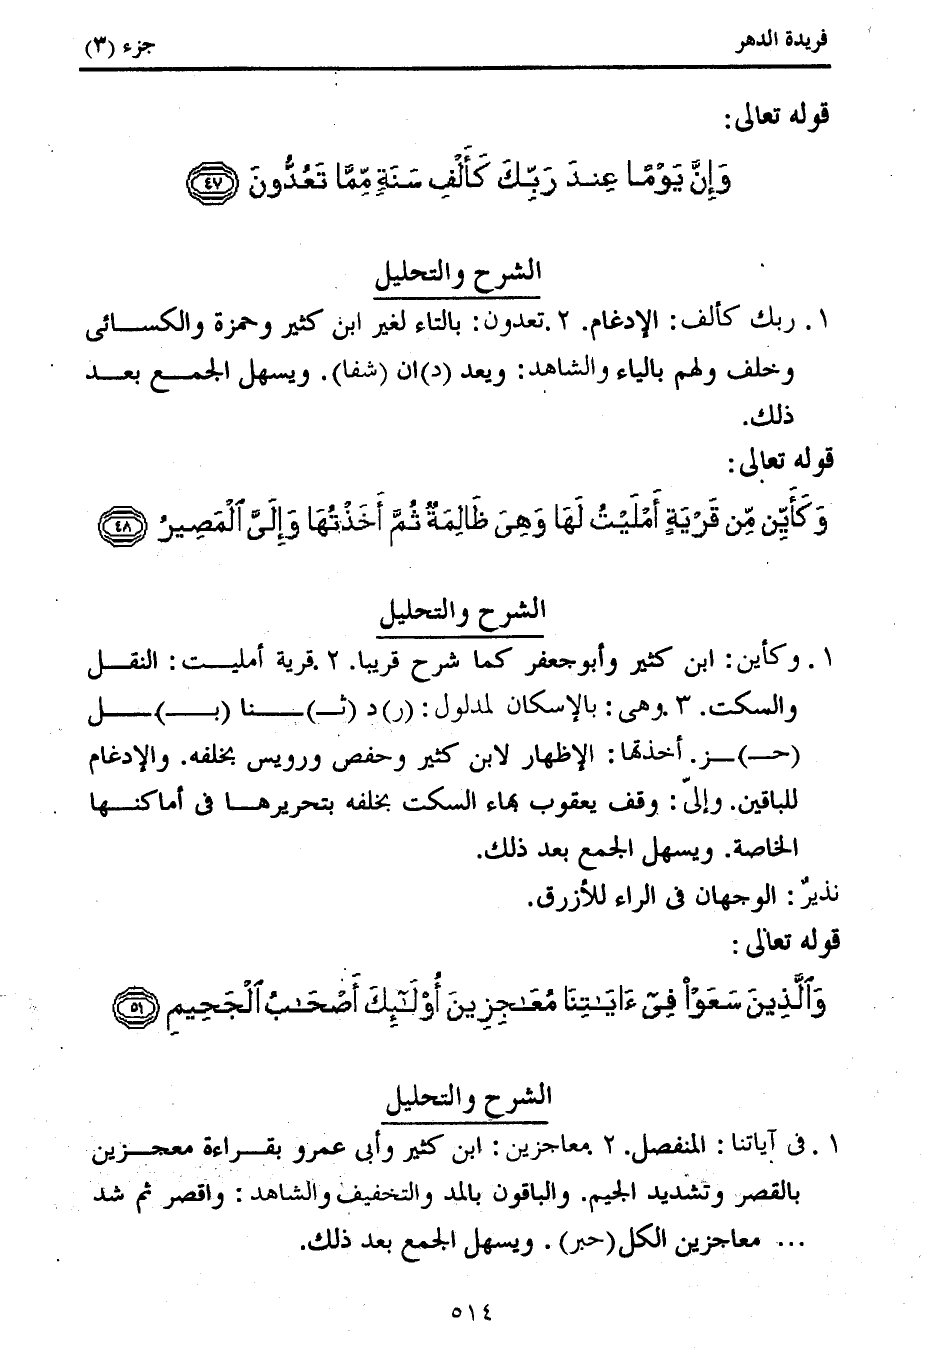 فريدة الدهر
جزء (٣)
قوله تعالى:
وَإِنَّ يَوْمًا عِندَ رَبِّكَ كَأَلْفِ سَنَةٍ مِّمَّا تَعُدُّونَ ٤٧
الشرح والتحليل
١. ربك كألف: الإدغام. ٢.تعدون: بالتاء لغير ابن كثير وحمزة والكسائى
وخلف ولهم بالياء والشاهد: ويعد (د)ان (شفا). ويسهل الجمع بعد
ذلك.
قوله تعالى:
وَكَأَيِّن مِّن قَرْيَةٍ أَمْلَيْتُ لَهَا وَهِىَ ظَالِمَةٌ ثُمَّ أَخَذْتُهَا وَإِلَىَّ ٱلْمَصِيرُ ٤٨
الشرح والتحليل
١. وكأين: ابن كثير وأبوجعفر كما شرح قريبا. ٢.قرية أمليت: النقل
والسكت. ٣.وهى: بالإسكان لمدلول: (ر)د (ثـ)ـنا (بـ)ـل
(حـ)ـز. أخذتها: الإظهار لابن كثير وحفص ورويس بخلفه. والإدغام
للباقين. وإلىّ: وقف يعقوب بهاء السكت بخلفه بتحريرها فى أماكنها
الخاصة. ويسهل الجمع بعد ذلك.
نذيرٌ: الوجهان فى الراء للأزرق.
قوله تعالى:
وَٱلَّذِينَ سَعَوْا۟ فِىٓ ءَايَـٰتِنَا مُعَـٰجِزِينَ أُو۟لَـٰٓئِكَ أَصْحَـٰبُ ٱلْجَحِيمِ ٥١
الشرح والتحليل
١. فى آياتنا: المنفصل. ٢.معاجزين: ابن كثير وأبى عمرو بقراءة معجزين
بالقصر وتشديد الجيم. والباقون بالمد والتخفيف والشاهد: واقصر ثم شد
... معاجزين الكل(حبر). ويسهل الجمع بعد ذلك.
٥١٤